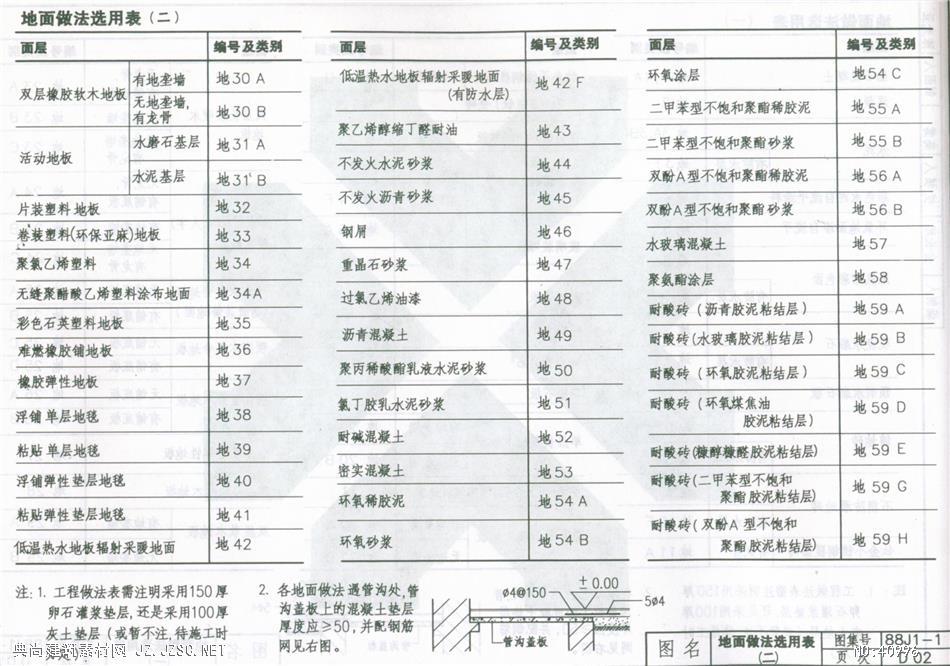 地面做法选用表（二）
面层 编号及类别
双层橡胶软木地板 有地垄墙 地30 A
无地垄墙,有龙骨 地30 B
活动地板 水磨石基层 地31 A
水泥基层 地31 B
片装塑料地板 地32
卷装塑料(环保亚麻)地板 地33
聚氯乙烯塑料 地34
无缝聚醋酸乙烯塑料涂布地面 地34A
彩色石英塑料地板 地35
难燃橡胶铺地板 地36
橡胶弹性地板 地37
浮铺单层地毯 地38
粘贴单层地毯 地39
浮铺弹性垫层地毯 地40
粘贴弹性垫层地毯 地41
低温热水地板辐射采暖地面 地42
面层 编号及类别
低温热水地板辐射采暖地面
(有防水层) 地42 F
聚乙烯醇缩丁醛耐油 地43
不发火水泥砂浆 地44
不发火沥青砂浆 地45
钢屑 地46
重晶石砂浆 地47
过氯乙烯油漆 地48
沥青混凝土 地49
聚丙稀酸酯乳液水泥砂浆 地50
氯丁胶乳水泥砂浆 地51
耐碱混凝土 地52
密实混凝土 地53
环氧稀胶泥 地54 A
环氧砂浆 地54 B
面层 编号及类别
环氧涂层 地54 C
二甲苯型不饱和聚酯稀胶泥 地55 A
二甲苯型不饱和聚酯砂浆 地55 B
双酚A型不饱和聚酯稀胶泥 地56 A
双酚A型不饱和聚酯砂浆 地56 B
水玻璃混凝土 地57
聚氨酯涂层 地58
耐酸砖（沥青胶泥粘结层） 地59 A
耐酸砖(水玻璃胶泥粘结层） 地59 B
耐酸砖（环氧胶泥粘结层） 地59 C
耐酸砖（环氧煤焦油
胶泥粘结层） 地59 D
耐酸砖(糠醇糠醛胶泥粘结层) 地59 E
耐酸砖(二甲苯型不饱和
聚酯胶泥粘结层) 地59 G
耐酸砖(双酚A型不饱和
聚酯胶泥粘结层) 地59 H
注: 1. 工程做法表需注明采用150厚
卵石灌浆垫层,还是采用100厚
灰土垫层（或暂不注,待施工时
2. 各地面做法遇管沟处,管
沟盖板上的混凝土垫层
厚度应≥50, 并配钢筋
网见右图。
± 0.00
ø4@150
5ø4
管沟盖板
图名 地面做法选用表
(二)
图集号 88J1-1
页次 D02
典尚建筑素材网 JZ.JZSC.NET